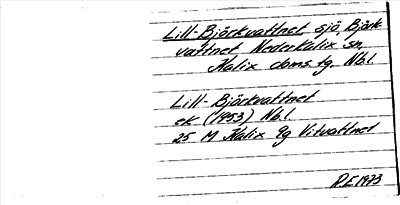 Lill-Björkvattnet, sjö, Björk-
vattnet Nederkalix sn,
Kalix doms. tg. Nbl.
Lill-Björkvattnet
ek (1953) Nbl.
25 M Kalix 9g Vitvattnet
R.E. 1973